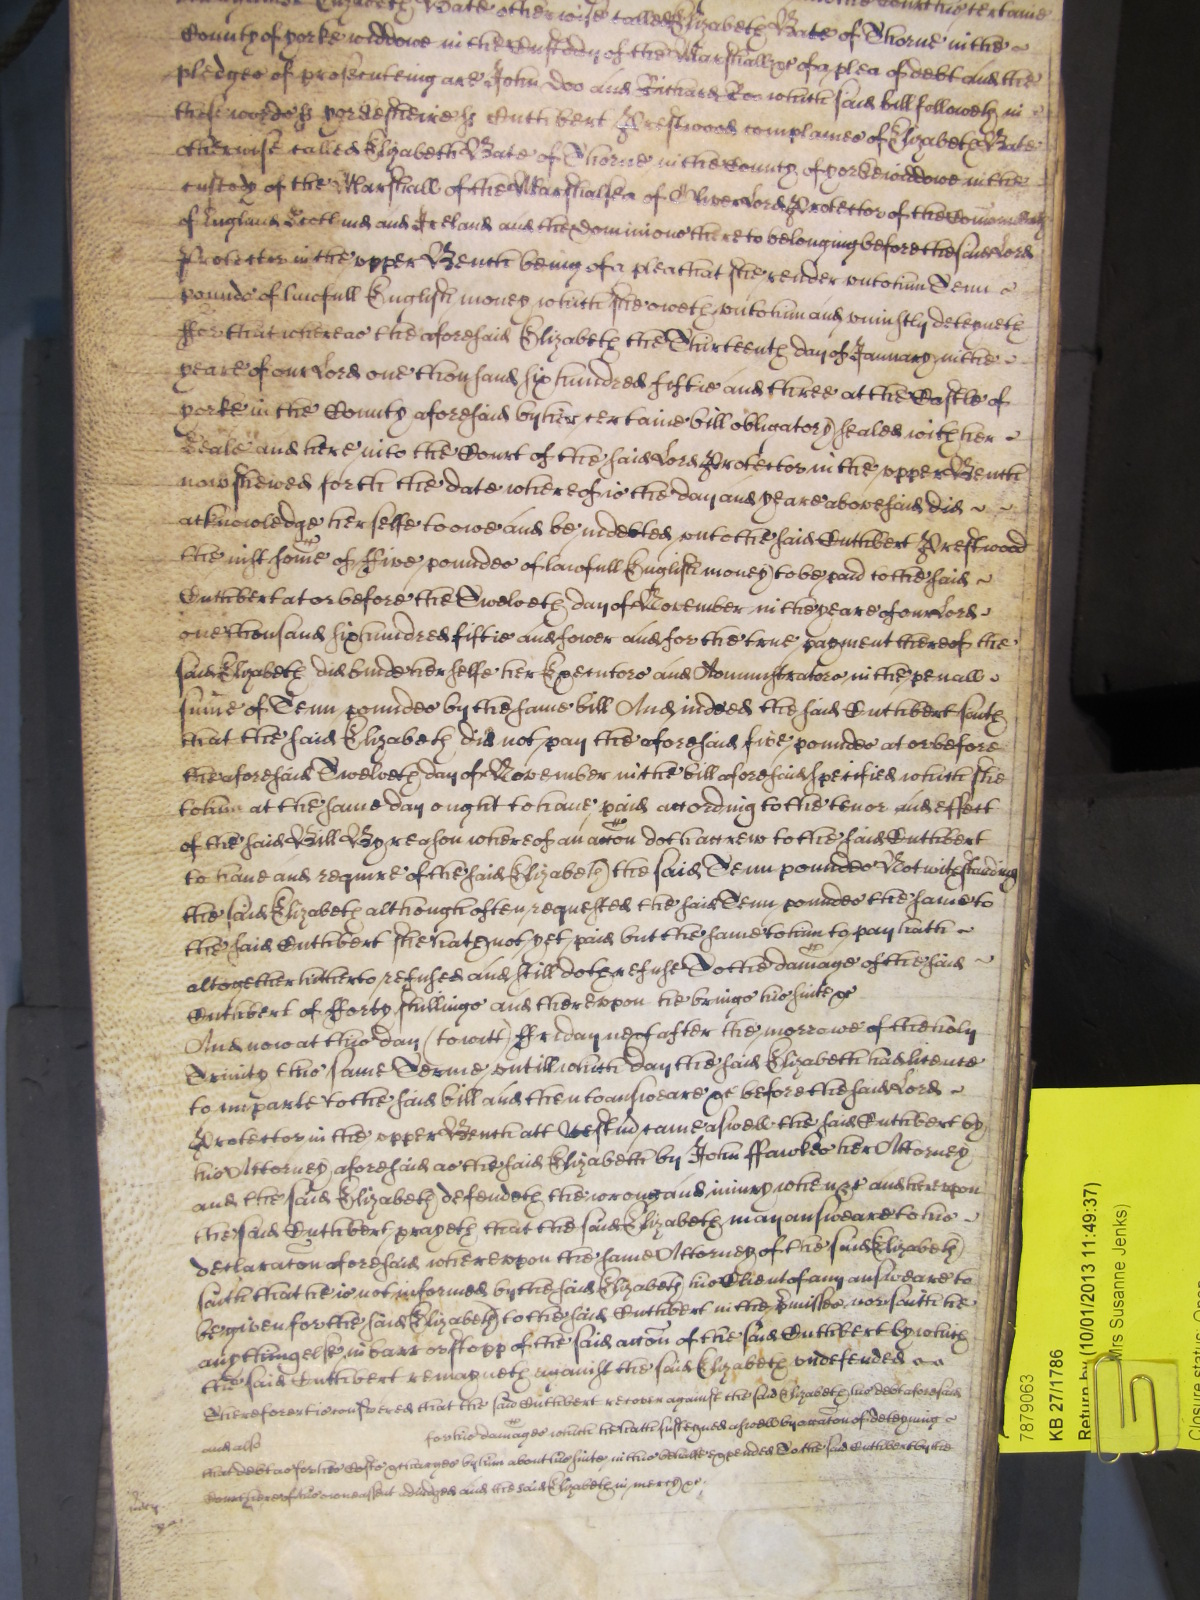 Elizabeth Bate otherwise called Elizabeth Bate of Thorne in the
County of yorke widdowe in the Custody of the Marshall &c of a plea of debt and the
pledges of prosecuteing are John doo and Richard Roo which said bill followeth in
these wordes ss yorkesheire ss Cuthbert Prestwood complaines of Elizabeth Bate
otherwise called Elizabeth Bate of Thorne in the County of yorke widdowe in the
custody of the Marshall of the Marshalsea of Oliver Lord Protector of the Comonwealth
of England Scotland and Ireland and the dominions thereto belonging before the said Lord
Protector in the upper Bench being of a plea that shee render unto him Tenn
pounds of lawfull English money which shee oweth unto him and uniustly deteyneth
ffor that whereas the aforesaid Elizabeth the Thirteenth day of January in the
yeare of our Lord one thousand six hundred fiftie and three at the Castle of
yorke in the County aforesaid by her certaine bill obligatory sealed with her
Seale and here into the Court of the said Lord Protector in the upper Bench
now shewed forth the date whereof is the day and yeare abovesaid did
acknowledge her selfe to owe and be indebted unto the said Cuthbert Prestwood
the iust some of ffive poundes of lawfull English money to be paid to the said
Cuthbert at or before the Twelveth day of November in the yeare of our Lord
one thousand six hundred fiftie and fower and for the true payment thereof the
said Elizabeth did binde her selfe her Executors and Administrators in the penall
sume of Tenn poundes by the same bill And indeed the said Cuthbert saith
that the said Elizabeth did not pay the aforesaid five poundes at or before
the aforesaid Twelveth day of November in the bill aforesaid specified which shee
to him at the same day ought to have paid according to the tenor and effect
of the said Bill By reason whereof an accon doth accrew to the said Cuthbert
to have and require of the said Elizabeth the said Tenn poundes Notwithstanding
the said Elizabeth although often requested the said Tenn poundes the same to
the said Cuthbert shee hath not yet paid but the same to him to pay hath
altogether hitherto refused and still doth refuse To the damage of the said
Cuthbert of fforty shillings and thereupon he brings his suite &c
And now at this day (to witt) ffriday next after the morrowe of the holy
Trinity this same Terme untill which day the said Elizabeth had licence
to imparle to the said bill and then to answeare &c before the said Lord
Protector in the upper Bench att Westm came aswell the said Cuthbert by
his Attorney aforesaid as the said Elizabeth by John ffawkes her Attorney
and the said Elizabeth defendeth the wrong and iniury when &c and hereupon
the said Cuthbert prayeth that the said Elizabeth may answeare to his
declaraton aforesaid whereupon the same Attorney of the said Elizabeth
saith that he is not informed by the said Elizabeth his Client of any answeare to
be given for the said Elizabeth to the said Cuthbert in the pmisses nor saith he
any thing else in barr or stopp of the said accon of the said Cuthbert by which
the said Cuthbert remayneth against the said Elizabeth undefended
Therefore it is considered that the said Cuthbert recover against the said Elizabeth his debt aforesaid
and also for his damages which he hath susteyned aswell by occaton of deteyning
that debt as for his Costs & charges by him about his suite in this behalfe expended To the said Cuthbert by the
Court here of his owne assent adiudged And the said Elizabeth in mercy &c
7879063
KB 27/1786
Return by (10/01/2013 11:49:37)
Mrs Susanne Jenks)
Closure status: Open